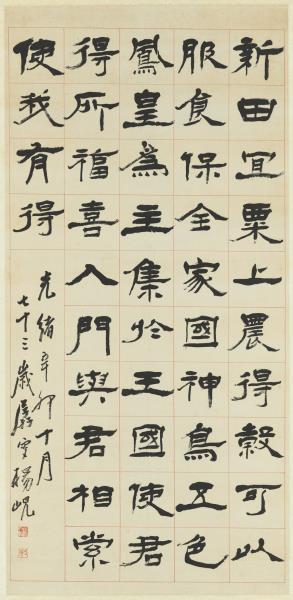 新田宜粟上農得穀可以
服食保全家國神鳥五色
鳳皇為主集於王國使君
得所福喜入門與君相索
使我有得
光緒辛卯十月
七十三歲叟楊峴